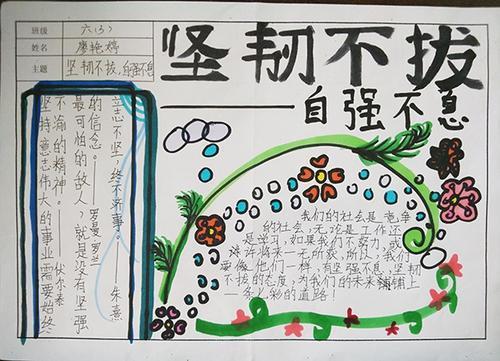 班级 六(3)
姓名 廖艳婷
主题 坚韧不拔,自强不息
坚韧不拔
——自强不息
坚持意志伟大的事业需要始终
不渝的精神。——伏尔泰
最可怕的敌人,就是没有坚强
的信念。——罗曼罗兰
意志不坚,终不济事。——朱熹
我们的社会是竞争
的社会,无论是工作还
是学习,如果我们不努力,或
许将来一无所获,所以,我们
要像他们一样,有坚强不息,坚韧
不拔的态度,为我们的未来铺上
一条彩的道路!